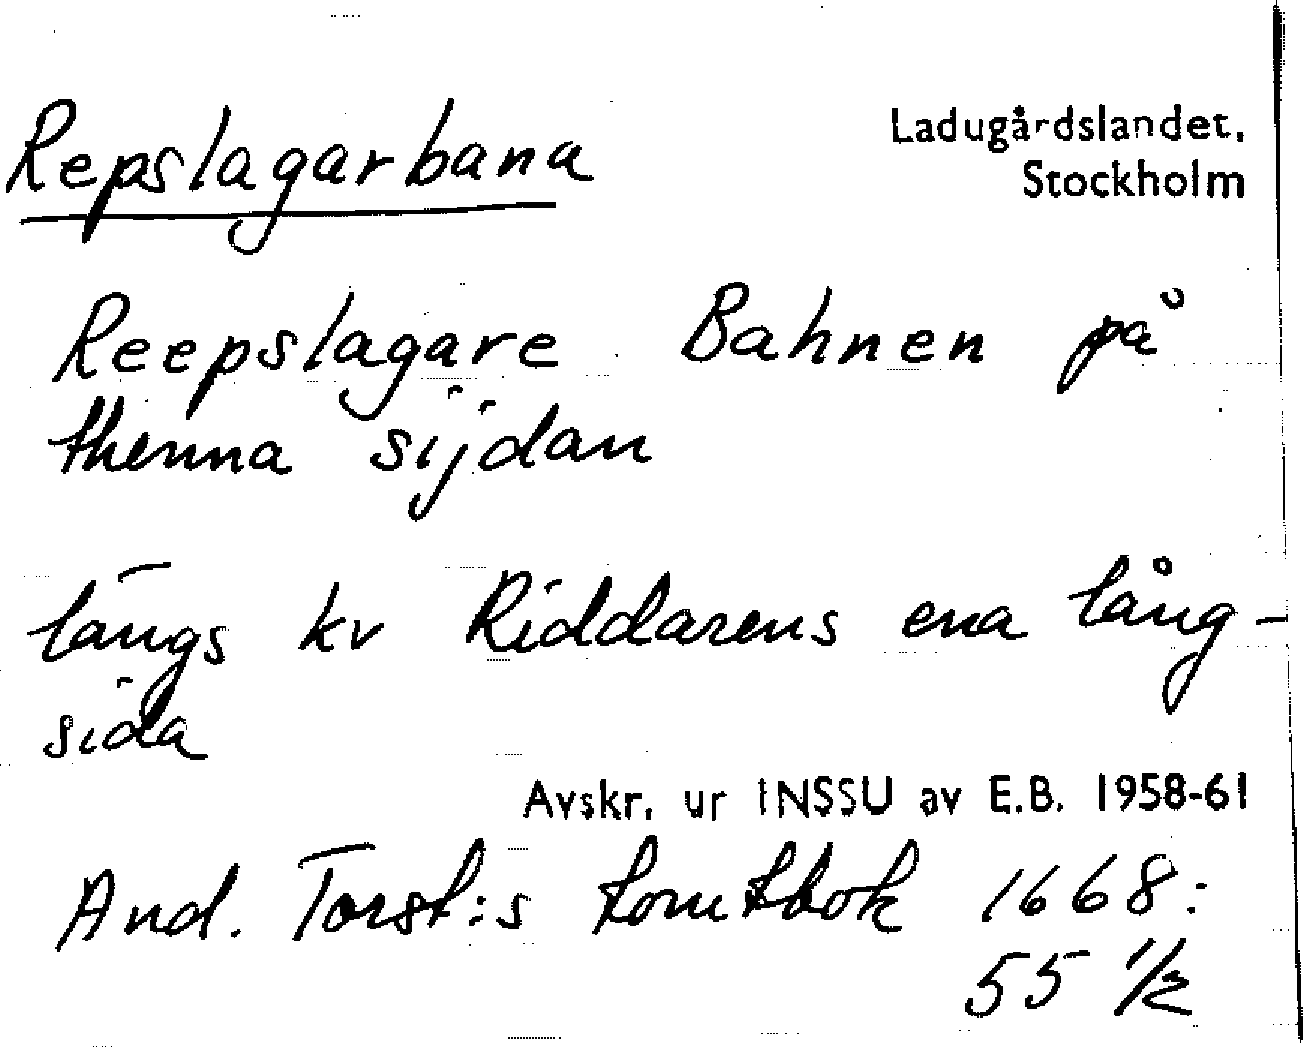 Repslagarbana
Ladugårdslandet,
Stockholm
Reepslagare Bahnen på
thenna sijdan
längs kv Riddarens ena lång-
sida
Avskr. ur INSSU av E.B. 1958-61
And. Torst:s tomtbok 1668:
55 1/2